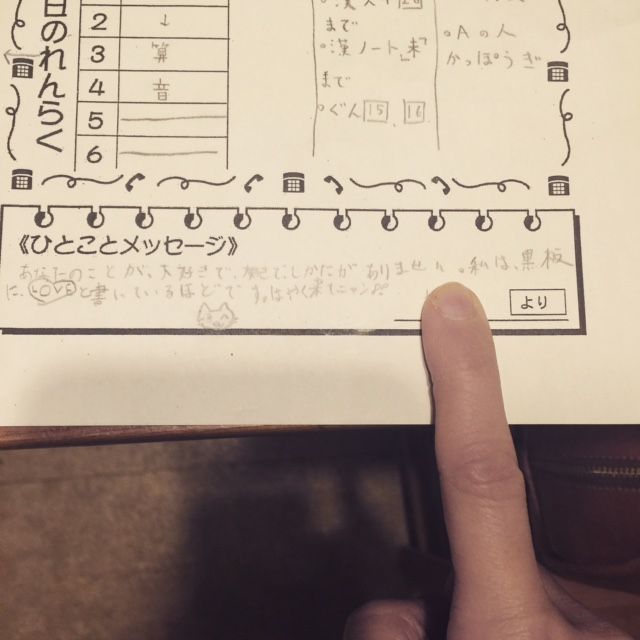 日のれんらく
2 ↓
3 算
4 音
5
6
まで
○漢ノート「末」
まで
○ぐん 15 、 16
○Aの人
かっぽうぎ
《ひとことメッセージ》
あなたのことが、大好きで、好きでしかたがありません。私は、黒板
に、LOVEと書いているほどです。はやく来てニャン!!
より